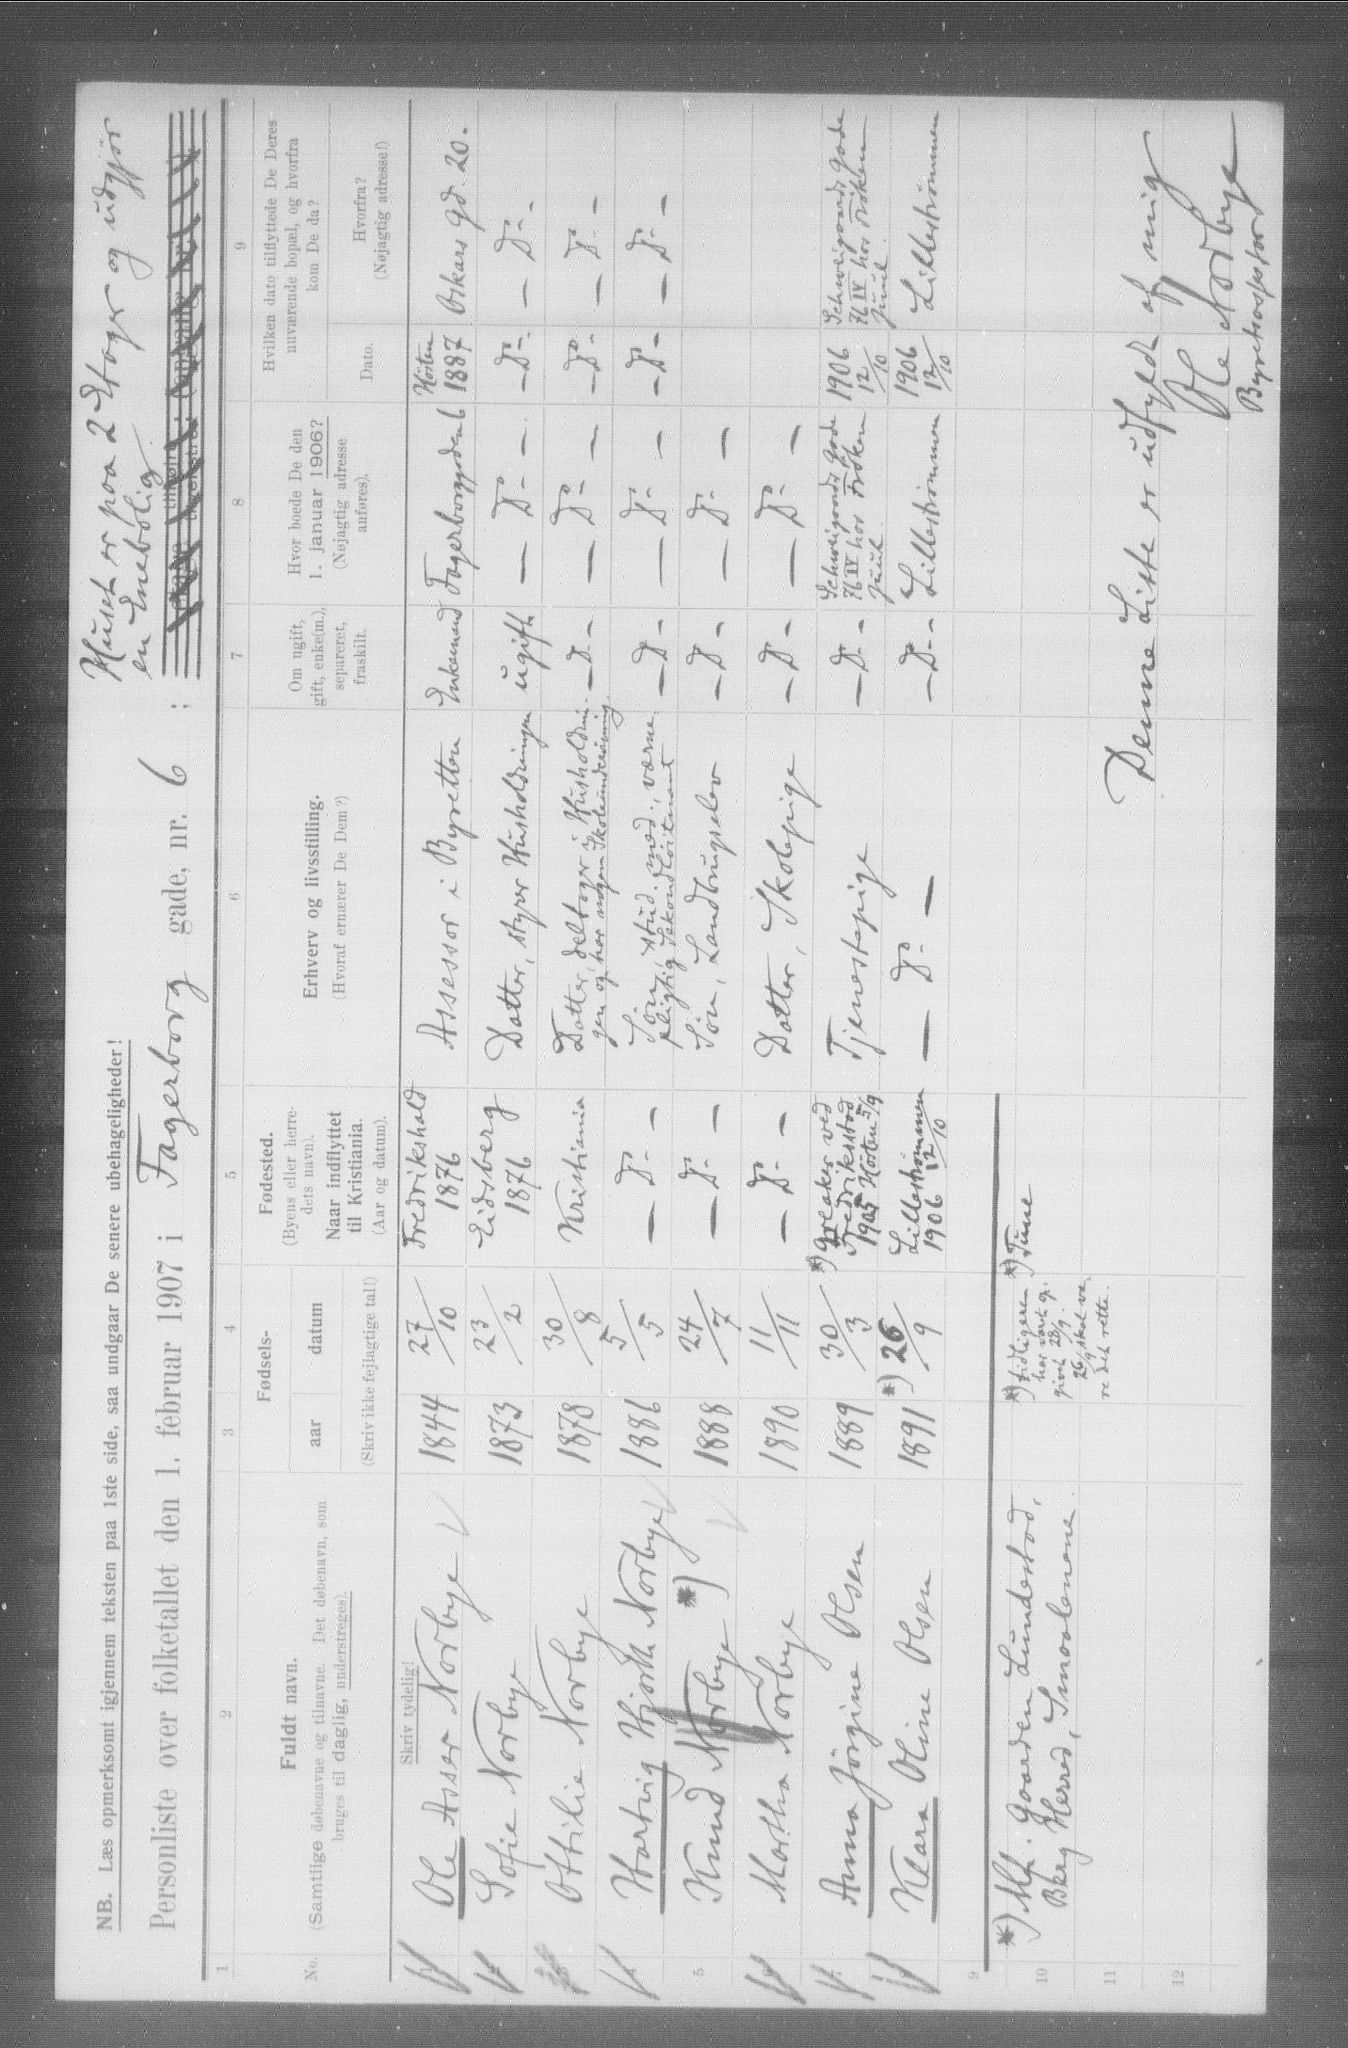 NB. Læs opmerksomt igjennem teksten paa 1ste side, saa undgaar De senere ubehageligheder!
Huset er paa 2 Etager og udgjør
en Enebolig
Personliste over folketallet den 1. februar 1907 i Fagerborg gade, nr. 6 ;
1 2 3 4 5 6 7 8 9
No.
Fuldt navn.
(Samtlige døbenavne og tilnavne. Det døbenavn, som
bruges til daglig, understreges).
Fødsels-
aar datum
(Skriv ikke fejlagtige tal!)
Fødested.
(Byens eller herre-
dets navn).
Naar indflyttet
til Kristiania.
(Aar og datum).
Erhverv og livsstilling.
(Hvoraf ernærer De Dem?)
Om ugift,
gift, enke(m.),
separeret,
fraskilt.
Hvor boede De den
1. januar 1906?
(Nøjagtig adresse
anføres).
Hvilken dato tilflyttede De Deres
nuværende bopæl, og hvorfra
kom De da?
Dato.
Hvorfra?
(Nøjagtig adresse!)
Skriv tydelig!
Ole Asser Norbye 1844 27/10 Fredrikshald 1876 Assessor i Byretten Enkemand Fagerborggaden 6 Hösten 1887 Oskars gd. 20.
Sofie Norbye 1873 23/2 Eidsberg 1876 Datter, styrer Husholdningen ugift — Do — — Do - — Do -
Ottilie Norbye 1878 30/8 Kristiania Datter, deltager i Husholdnin-
gen og har nogen Skoleundervisning — Do - — Do — — Do - — Do —
Hartvig Hjorth Norbye 1886 5/5 — Do — Søn, stud. med., værne-
pligtig Sekondløitnant — Do - — Do — — Do - — Do —
5 Knud Norbye *) 1888 24/7 — Do — Søn, Landbrugselev — Do - — Do —
Martha Norbye 1890 11/11 — Do — Datter, Skolepige — Do - — Do —
Anna Jörgine Olsen 1889 30/3 *) Greaker ved
Fredriksstad
1905 Hösten 5/9 Tjenestepige — Do - Schweigaards Gade
76 IV hos Frøken
Juul 1906 12/10 Schweigaards Gade
76 IV hos Frøken
Juul.
Klara Oline Olsen 1891 *) 26/9 Lillestrømmen
1906 12/10 — Do — — Do - Lillestrømmen 1906 12/10 Lillestrømmen
9
10
11
12
*) Mf. Gaarden Lundestad,
Berg Herred, Smaalenene.
*) tidligere
har været op-
givet 28/9.
26/9 skal væ-
re det rette.
*) Tune
Denne Liste er udfyldt af mig
Ole Norbye
Byretsassessor